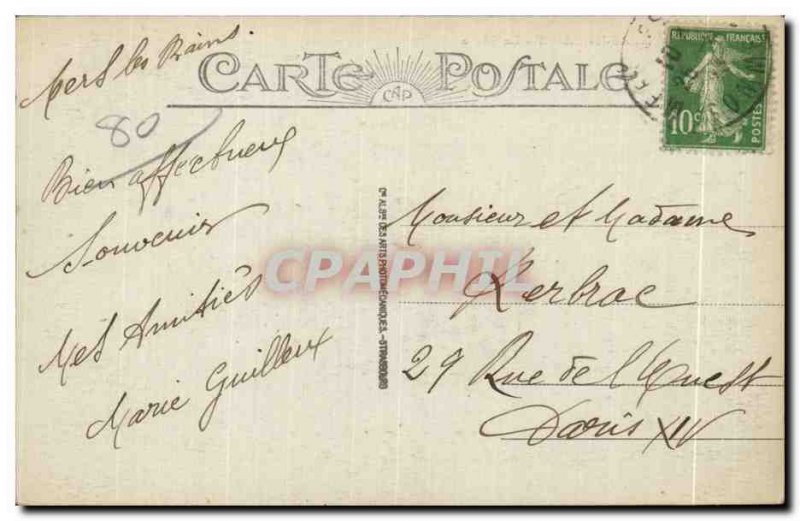 Mers les Bains.
CARTE POSTALE
CAP
REPUBLIQUE FRANÇAISE
10c
POSTES
80
Bien affectueux
Souvenir
Mes Amitiés
Marie Guilleux
Cie ALSne DES ARTS PHOTOMÉCANIQUES.-STRASBOURG
CPAPHIL
Monsieur et Madame
Kerbrac
29 Rue de l'Ouest
Paris XIV